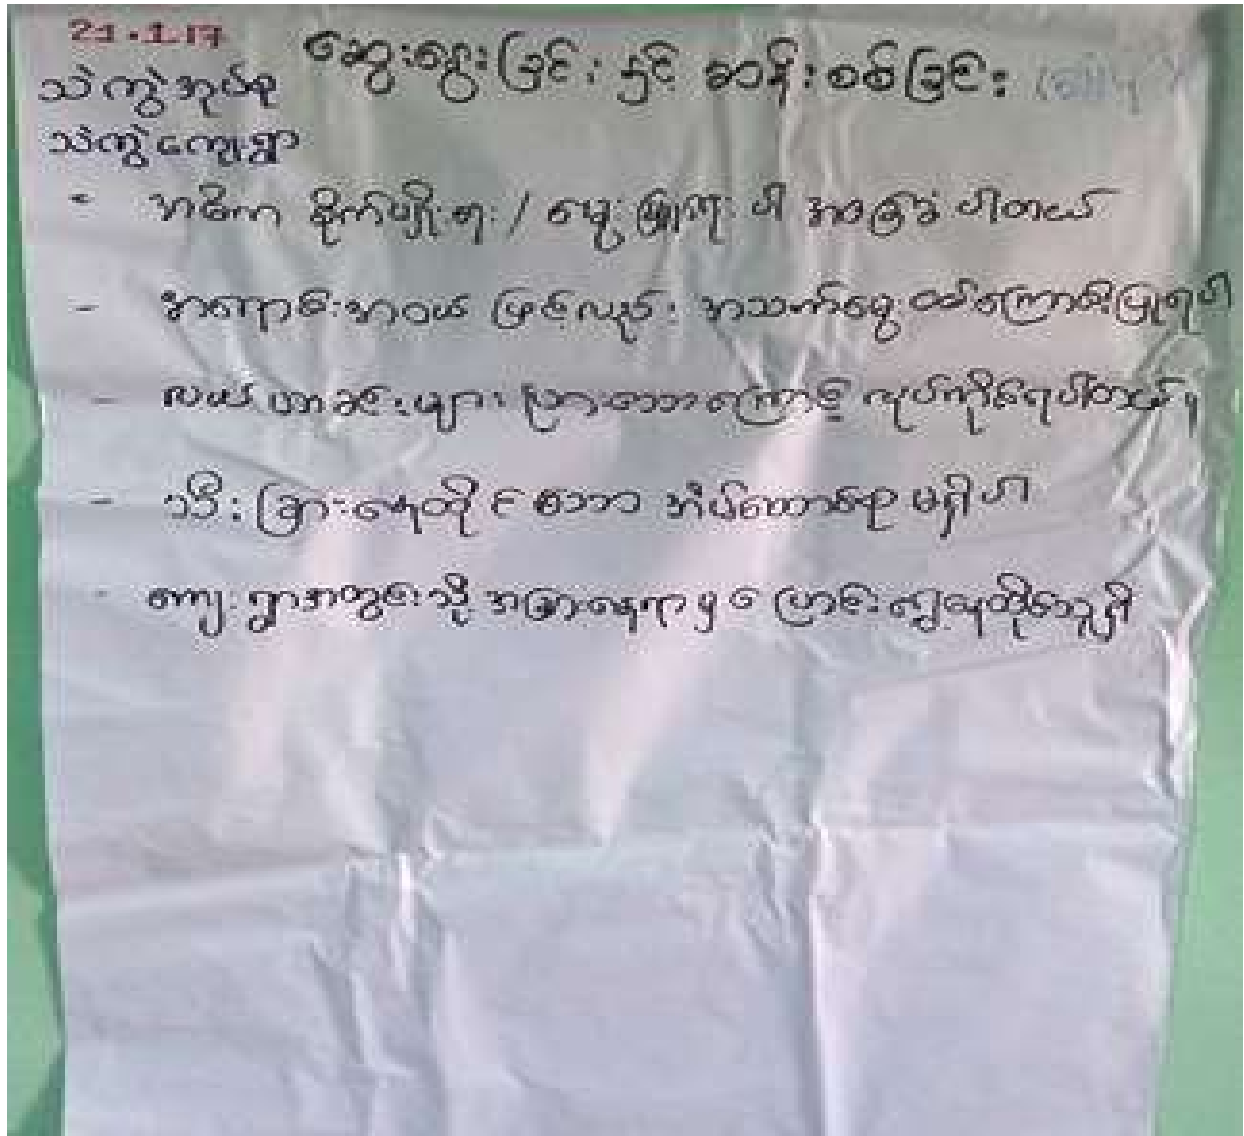 21.1.17
ဆွေးနွေးခြင်း နှင့် ဆန်းစစ်ခြင်း
သဲကွဲအုပ်စု
သဲကွဲကျေးရွာ
- အဓိက စိုက်ပျိုးရေး / မွေးမြူရေး ပါ အခြေခံ ပါတယ်
- အရောင်းအဝယ် ဖြင့်လည်း အသက်မွေး ဝမ်းကြောင်းပြုရပါ
- လယ် ယာခင်းများ ကြောင့် လုပ်ကိုင်ရပါတယ်။
- သီးခြားနေထိုင်သော အိမ်ထောင်စု မရှိပါ
- ကျေးရွာအတွင်းသို့ အခြားနေရာမှ ပြောင်းရွှေ့နေထိုင်သူ